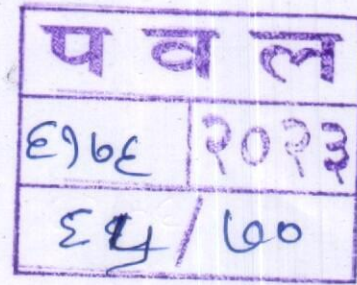 प व ल
६१७६ २०२३
६५/७०